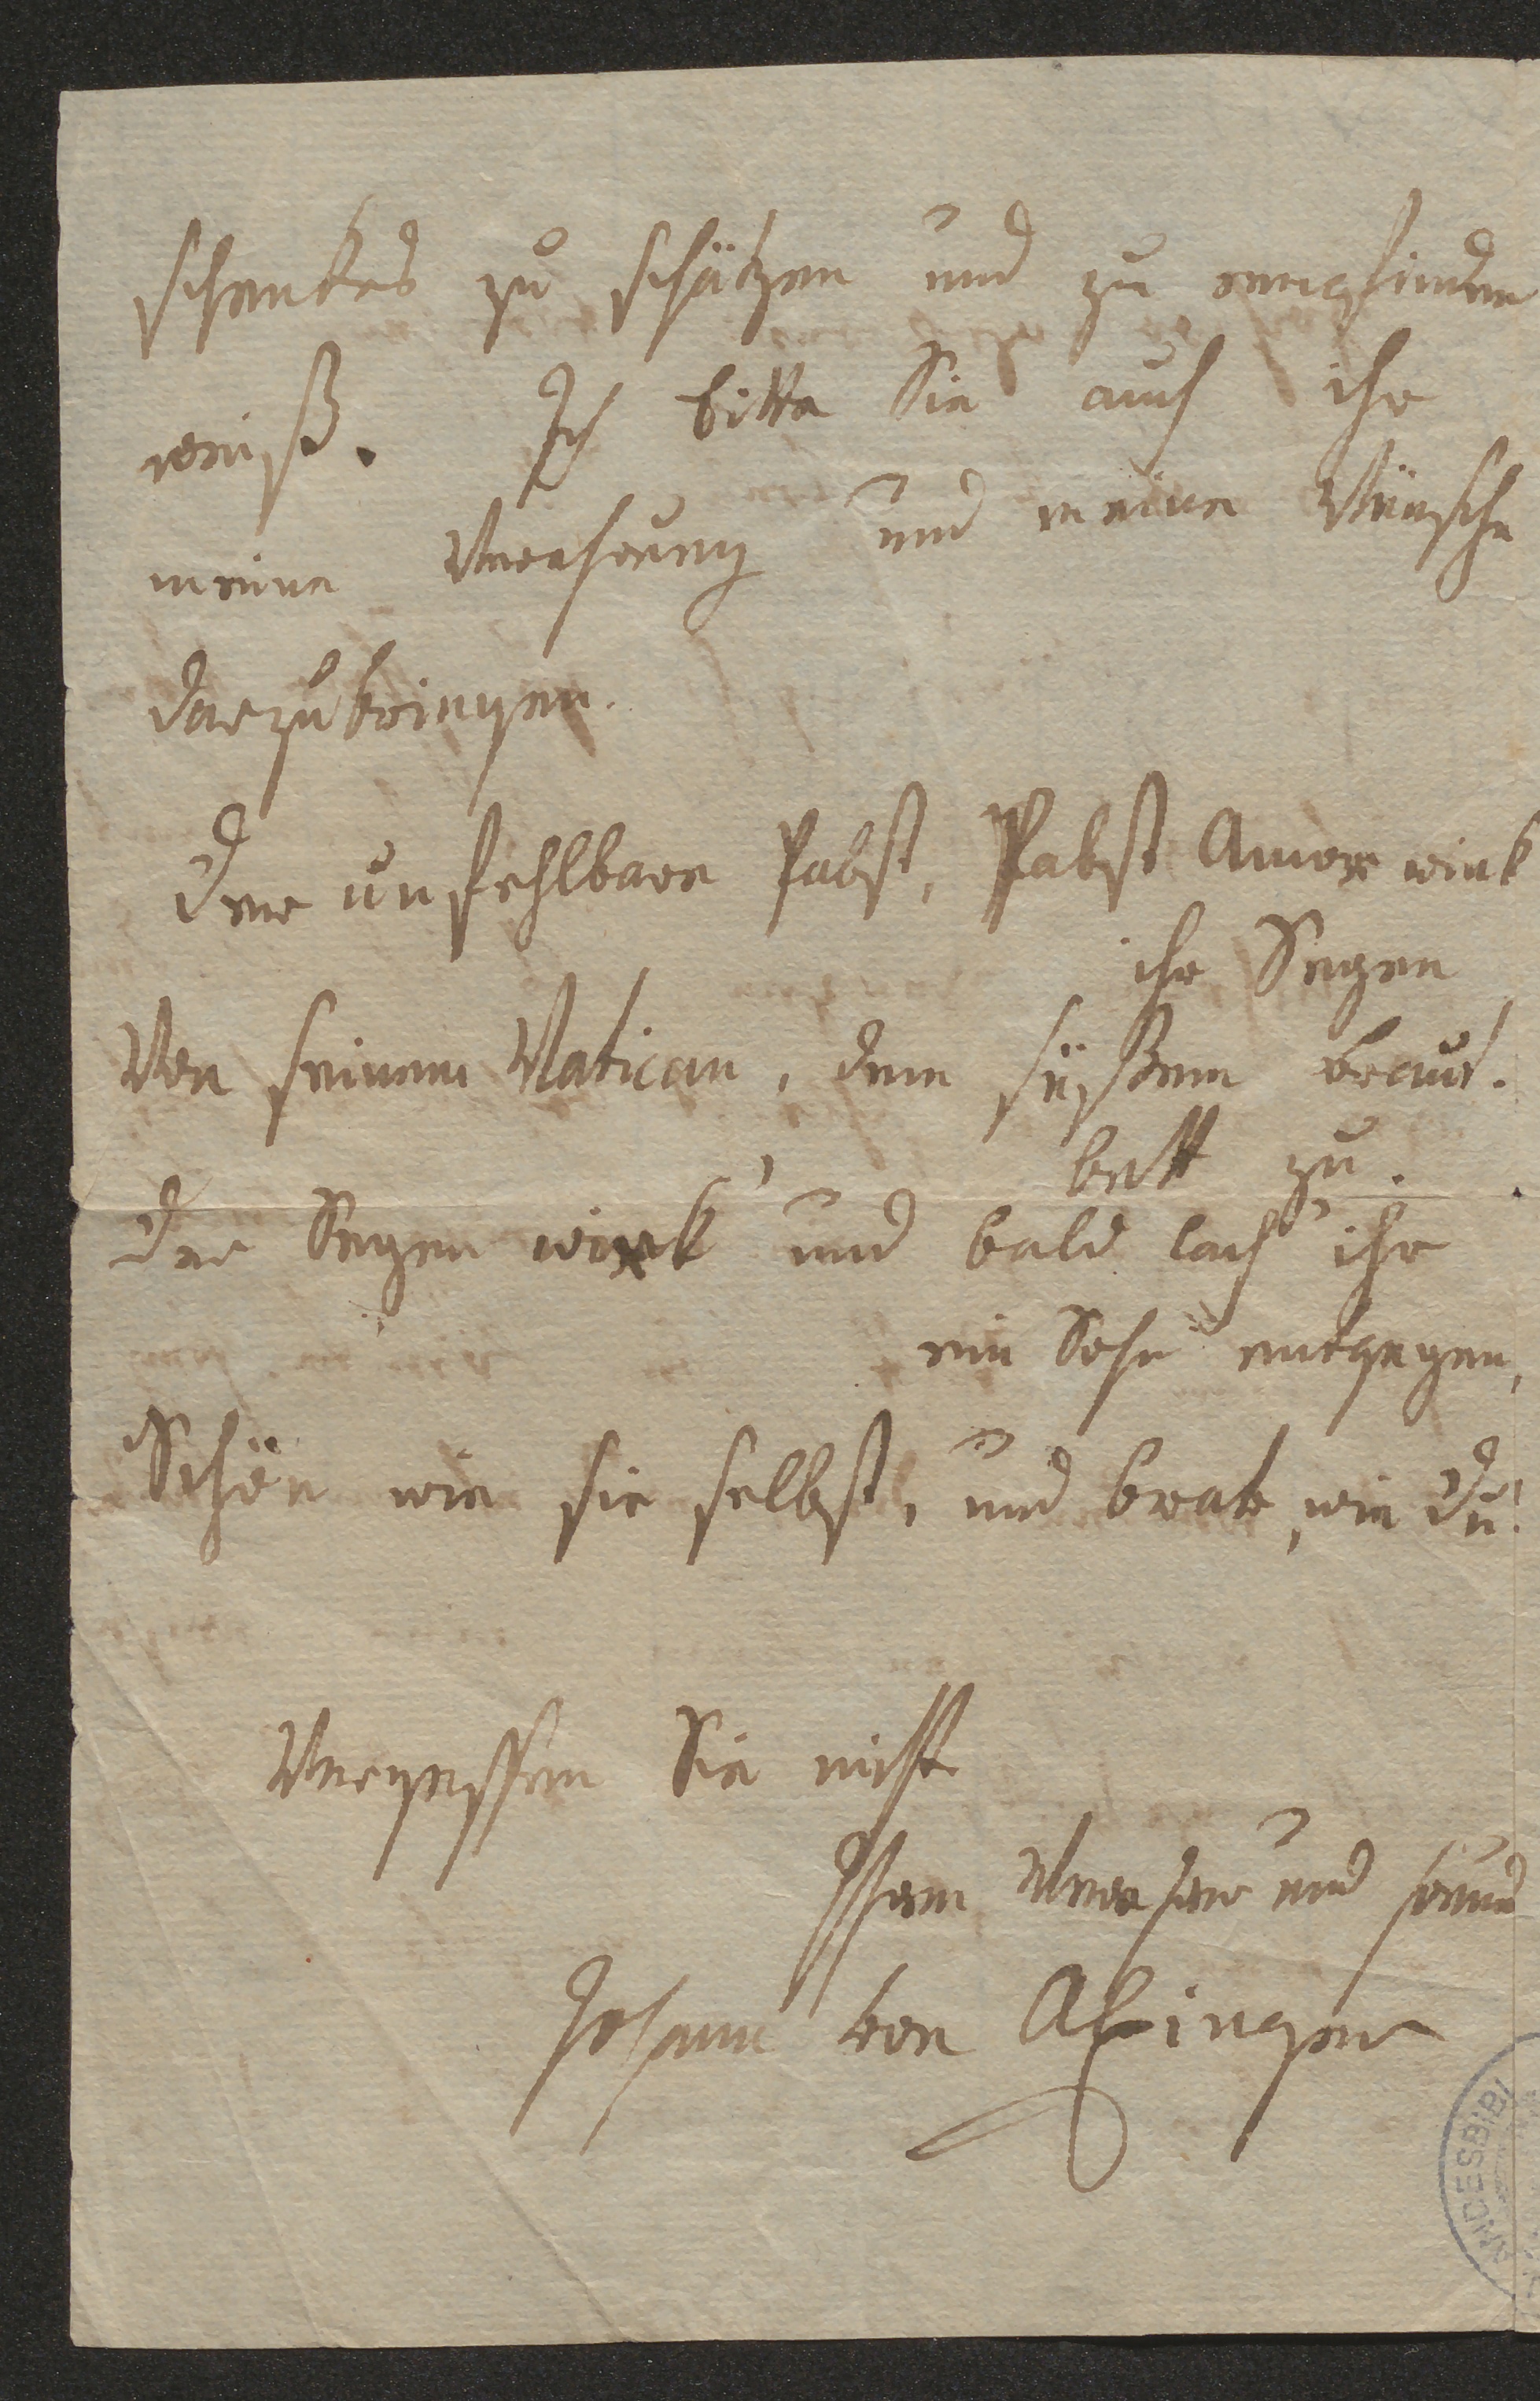 schenkes zu schätzen und zu empfinden
weiß. Ich bitte Sie auch ihr
meine Verehrung und meine Wünsche
darzubringen.
Der unfehlbare Pabst, Pabst Amor wink
ihr Segen
Von seinem Vatican, dem süßem braut.
bett zu.
Der Segen wirk' und bald lach' ihr
ein Sohn entgegen,
Schön wie sie selbst, und brav, wie du!
Vergessen Sie nicht
Ihren Verehrer und Freund
Johann von Alxinger
NDESBIBL